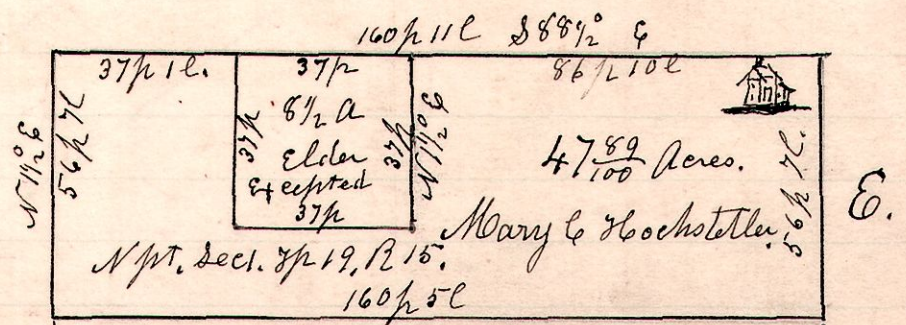 160p 11l S 88½° E
37p 1l.
37p
86p 10l
N 1½° E
56p 7l
37p
8½ A
Elder
Excepted
37p
37p
N 1½° E
47 89/100 Acres.
Mary C Hochstetler.
56p 7l.
E.
N pt. Sec 1. Tp 19, R 15.
160p 5l